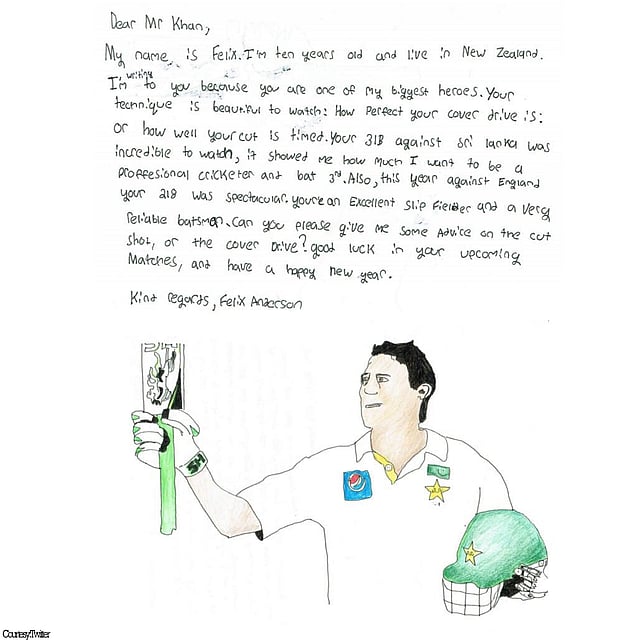 Dear Mr Khan,
My name is Felix. I'm ten years old and live in New Zealand.
I'm writing to you because you are one of my biggest heroes. Your
technique is beautiful to watch: How Perfect your cover drive is:
or how well your cut is timed. Your 313 against Sri lanka was
incredible to watch, it showed me how much I want to be a
proffesional cricketer and bat 3rd. Also, this year against England
your 218 was spectacular. you're an Excellent slip Fielder and a very
reliable batsman. Can you please give me some Advice on the cut
shot, or the cover Drive? good luck in your upcoming
Matches, and have a happy new year.
Kind regards, Felix Anderson
SH
Courtesy:Twitter